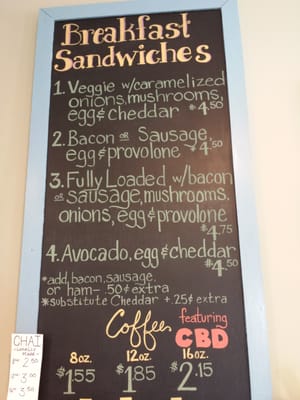 Breakfast
Sandwiches
1. Veggie w/caramelized
onions, mushrooms,
egg & cheddar $4.50
2. Bacon or Sausage,
egg & provolone $4.50
3. Fully Loaded w/bacon
or sausage, mushrooms,
onions, egg & provolone
$4.75
4. Avocado, egg & cheddar
$4.50
*add, bacon, sausage,
or ham - .50¢ extra
*substitute Cheddar + .25¢ extra
Coffee featuring
CBD
8oz. 12oz. 16oz.
$1.55 $1.85 $2.15
CHAI
2.50
3.00
3.50